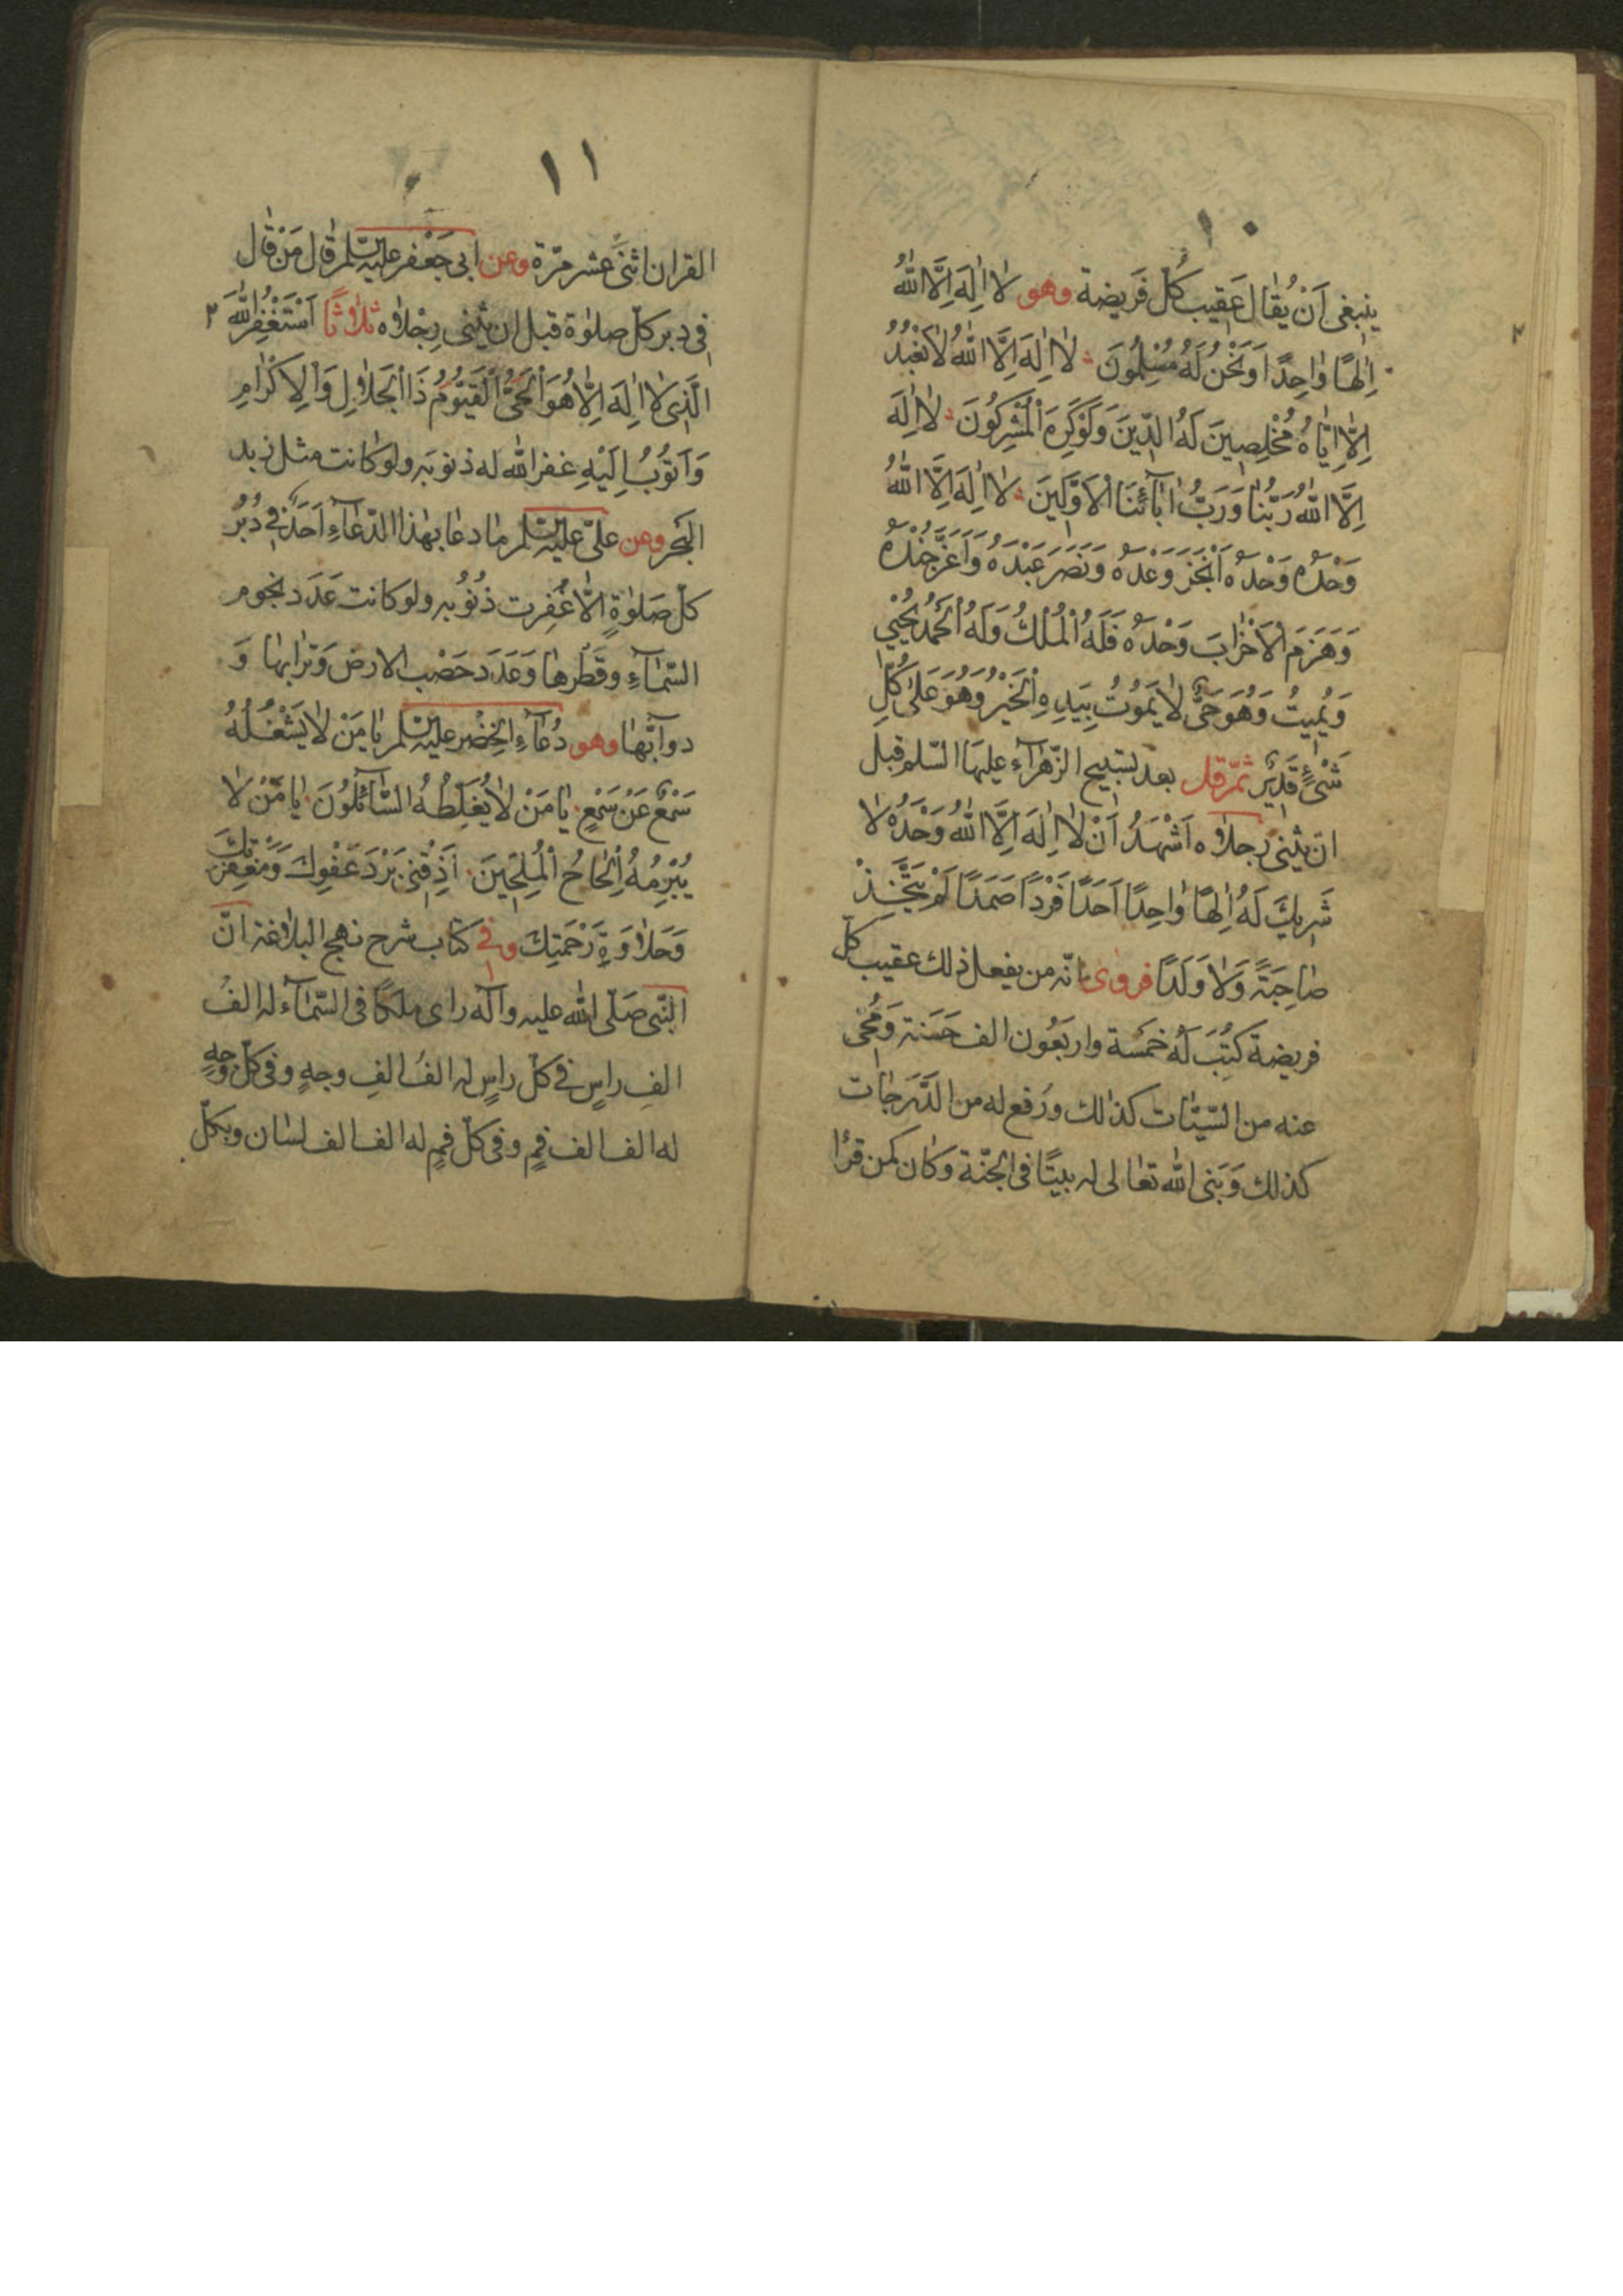 ١٠
ينبغى اَنْ يُقٰال عَقيب كلّ فَريضة وهو لٰا اِلٰهَ اِلَّا اللّٰهُ
اِلٰهًا وٰاحِدًا وَنَحْنُ لَهُ مُسْلِمُونَ لٰا اِلٰهَ اِلَّا اللّٰهُ لٰا نَعْبُدُ
اِلّٰا اِيّٰاهُ مُخْلِصِينَ لَهُ الدّينَ وَلَوْكَرِهَ الْمُشْرِكُونَ لٰا اِلٰهَ
اِلَّا اللّٰهُ رَبُّنٰا وَرَبُّ اٰبٰآئِنَا الْاَوَّلِينَ لٰا اِلٰهَ اِلَّا اللّٰهُ
وَحْدَهُ وَحْدَهُ اَنْجَزَ وَعْدَهُ وَنَصَرَ عَبْدَهُ وَاَعَزَّ جُنْدَهُ
وَهَزَمَ الْاَحْزٰابَ وَحْدَهُ فَلَهُ الْمُلْكُ وَلَهُ الْحَمْدُ يُحْيِي
وَيُمِيتُ وَهُوَ حَىٌّ لٰا يَمُوتُ بِيَدِهِ الْخَيْرُ وَهُوَ عَلىٰ كُلِّ
شَىْءٍ قَدِيرٌ ثمّ قل بعد تسبيح الزّهرٰآء عليهَا السّلم قبل
ان يثنى رجلاه اَشْهَدُ اَنْ لٰا اِلٰهَ اِلَّا اللّٰهُ وَحْدَهُ لٰا
شَرِيكَ لَهُ اِلٰهًا وٰاحِدًا اَحَدًا فَرْدًا صَمَدًا لَمْ يَتَّخِذْ
صٰاحِبَةً وَلٰا وَلَدًا فروى انّه من يفعل ذلك عقيب كلّ
فريضة كُتِبَ لَهُ خمسَة واربَعُون الف حَسَنة وَمُحِىَ
عنه من السّيّئٰات كذٰلك ورُفع له من الدَّرَجٰات
كذلك وَبَنى اللّٰه تعٰالى له بيتًا فى الجنّة وَكٰان كمن قرٔا
١١
القران اثنىْ عشر مرّة وعن ابى جَعْفر عليه السلم قٰال مَنْ قٰال
فى دبر كلّ صلوٰة قبل ان يثنى رِجْلاه ثلاثًا اَسْتَغْفِرُ اللّٰهَ ٢
الَّذِى لٰا اِلٰهَ اِلّٰا هُوَ الْحَىُّ الْقَيُّومُ ذَا الْجَلٰالِ وَالْاِكْرٰامِ
وَاَتُوبُ اِلَيْهِ غفر اللّٰه له ذنوبَه ولو كانت مثل زبد
البَحر وعن علىّ عليه السلم مٰا دعٰا بهٰذا الدّعٰآءِ اَحَدٌ فى دُبُر
كلّ صَلوٰةٍ الّا غُفِرت ذُنُوبه ولو كانت عَدَد نجوم
السّمٰآءِ وقَطْرِهٰا وَعَدَد حَصْبِ الارض وَترٰابهٰا وَ
دوآبّهٰا وهو دُعٰآءِ الخِضْر عليه السلم يٰا مَنْ لٰا يَشْغَلُهُ
سَمْعٌ عَنْ سَمْعٍ يٰا مَنْ لٰا يُغَلِّطُهُ السّٰآئِلُونَ يٰا مَنْ لٰا
يُبْرِمُهُ اِلْحٰاحُ الْمُلِحِّينَ اَذِقْنِى بَرْدَ عَفْوِكَ وَمَغْفِرَتِكَ
وَحَلٰاوَةِ رَحْمَتِكَ وفى كتاب شرح نهج البلاغة انّ
النّبى صَلّى اللّٰه عليه وآله رٰاى ملكًا فى السّمٰآء له الفُ
الفِ راسٍ فى كلّ راسٍ له الفُ الفِ وجهٍ وفى كلّ وجهٍ
له الف الف فمٍ وفى كلّ فمٍ له الف الف لسٰان وبكلّ